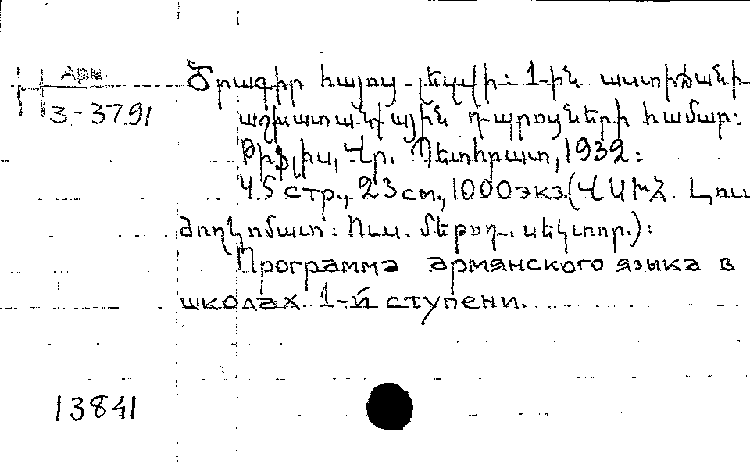 Арм.
3-3791
Ծրագիր հայոց լեզվի: 1-ին աստիճանի
աշխատանքային դպրոցների համար:
Թիֆլիս, Վր. Պետհրատ, 1932:
45 стр., 23 см, 1000 экз. (ՎՍԽՀ. Լուս
ժողկոմատ: Ուս. մեթոդ. սեկտոր.):
Программа армянского языка в
школах 1-й ступени.
13841